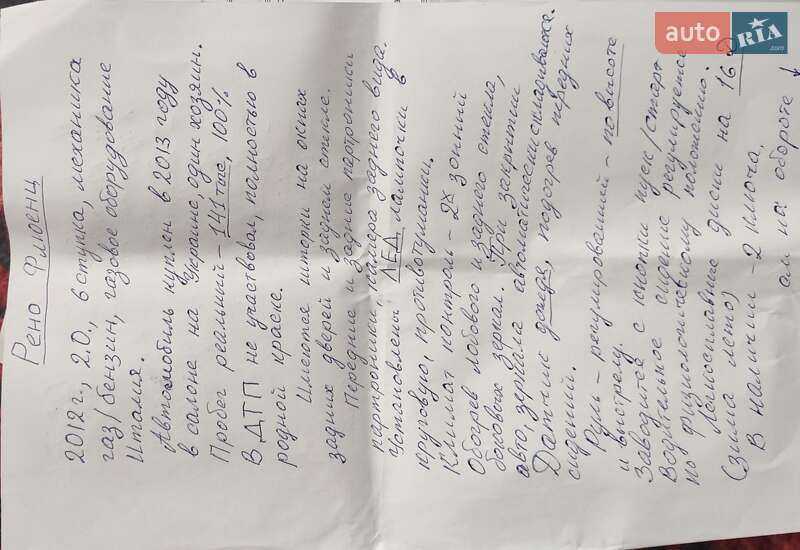 Рено Флюенц
2012 г., 2.0., 6 ступка, механика
газ/бензин, газовое оборудование
Италия.
Автомобиль куплен в 2013 году
в салоне на Украине, один хозяин.
Пробег реальний - 141 тыс, 100%
В ДТП не участвовал, полностью в
родной краске.
Имеются шторки на окнах
задних дверей и заднем стекле.
Передние и задние партроники
партроники, камера заднего вида.
Установлены ЛЕД лампочки в
круговую, противотуманки.
Климат контроль - 2х зонный
Обогрев лобового и заднего стекла,
боковых зеркал. При закрытии
авто, зеркала автоматически складываются.
Датчик дождя, подогрев передних
сидений.
Руль - регулированний - по высоте
и вылету.
Заводится с кнопки пуск/старт
Водительское сидение регулируется
по физиологическому положению.
Легкосплавние диски на 16
(зима лето)
В наличии - 2 ключа.
см на обороте ↓
auto RIA .com